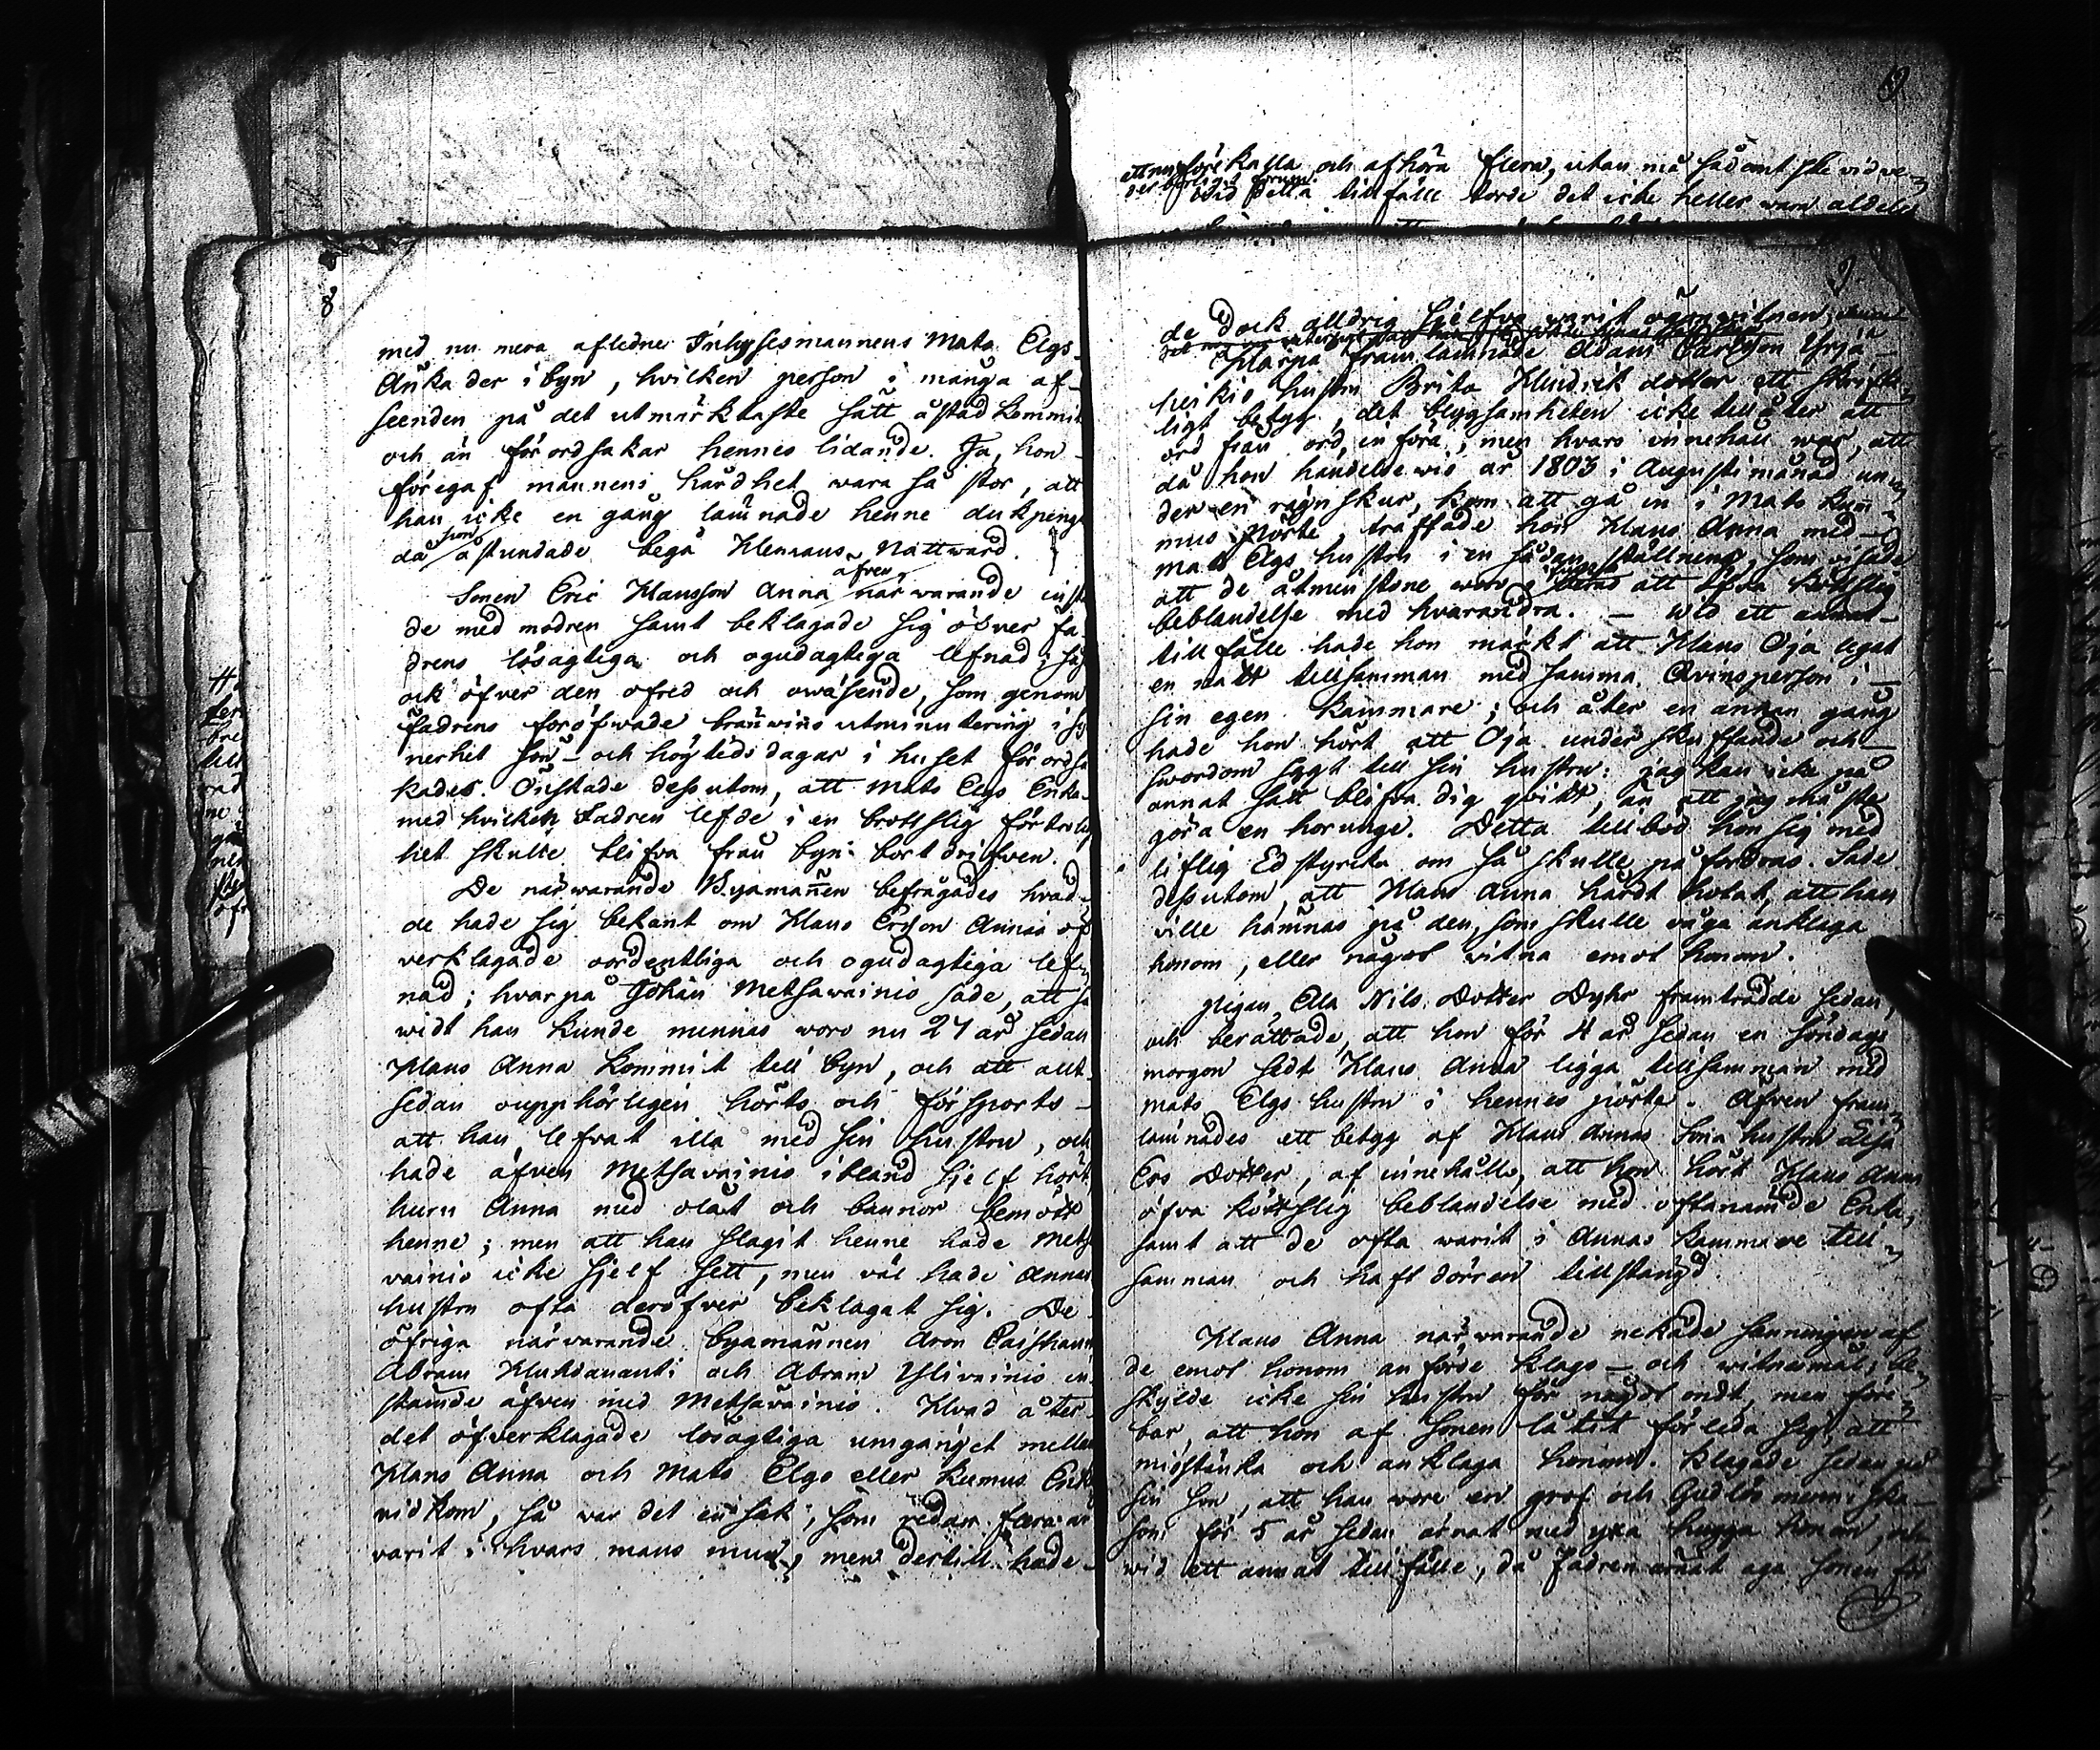 9
och afhöra flera, utan må sådant ske vid ve-
Vid detta tillfälle torde det icke heller wara aldeles
8
med nu mera afledne Inhysesmannens Mats Elgs
Änka der i byn, hvilken person i många af-
seenden på det utmärktaste sätt åstadkommit
och än förordsakar hennes lidande. Ja, hon
föregaf mannens hårdhet wara så stor, att
han icke en gång lämnade henne dukpengar
då hon åstundade begå Herrans Nattward.
Sonen Eric Klausson Anna äfven närwarande inst
de med modren samt beklagade sig öfver fa-
drens lösagtiga och ogudagtiga lefnad; så
ock öfver den ofred och owäsende, som genom
fadrens föröfwade bränwins utminutering i sy
nerhet sön- och högtidsdagar i huset förordsa
kades. Önskade dessutom, att Mats Elgs Enka
med hvilken Fadren lefde i en brottslig förtrolig
het skulle blifva från byn bortdrifven.
De närwarande Byamännen befrågades hvad
de hade sig bekant om Klaus Ersson Annas öf
verklagade oordentliga och ogudagtiga lef-
nad; hvarpå Johan Metsawainio sade, att så
widt han kunde minnas woro nu 24 år sedan
Klaus Anna kommit till byn, och att allt
sedan oupphörligen hörts och försports
att han lefvat illa med sin hustru, och
hade äfven Metsavainio ibland sjelf hört,
huru Anna med olåt och bannor bemött
henne; men att han slagit henne hade Metsa
vainio icke sjelf sett, men väl hade Annas
hustru ofta deröfver beklagat sig. De
öfriga närvarande byamännen Aron
Abram och Abram Ylivainio in
stämde äfven med Metsavainio. Hvad åter
det öfverklagade lösagtiga umgänget mellan
Klaus Anna och Mats Elgs eller Kumus Enka
vidkom, så war det en sak, som redan flera år
varit i hvars mans mun, men dertill hade
9
de dock alldrig sjelfva warit ögonwitnen
Härpå framlämnade Adam Carlsson Yrjä-
heikis hustru Brita Hindrik dotter ett skrift-
ligt betyg, det blygsamheten icke tillåter att
ord från ord införa, men hvars innehåll war, att
då hon händelsewis år 1803 i Augusti månad un-
der en rägnskur, kom att gå in i Mats Kum-
mus Pörte träffade hon Klaus Anna med
Mats Elgs hustru i en sådan ställning, som visade
att de åtminstone woro att öfva köttslig
beblandelse med hvarandra. — Wid ett annat
tillfälle hade hon märkt att Klaus Oja legat
en natt tillsamman med samma Qvinsperson i
sin egen kammare; och åter en annan gång
hade hon hört att Oja under skuffande och
swordom sagt till sin hustru: jag kan icke på
annat sätt blifva dig qvitt, än att jag måste
göra en horunge. Detta tillböd hon sig med
liflig Ed styrka om så skulle påfordras. Sade
dessutom, att Klaus Anna hårdt hotat, att han
ville hämnas på den, som skulle våga anklaga
honom, eller något vitna emot honom.
Pigan Ella Nils Dotter Dyhr framträdde sedan,
och berättade, att hon för 4 år sedan en söndags
morgon sedt Klaus Anna ligga tillsamman med
Mats Elgs hustru i hennes pörte. Äfven fram-
lämnades ett betyg af Klaus Annas Sona hustru Lisa
Ers Dotter, af innehåll, att hon hört Klaus Anna
öfva köttslig beblandelse med oftanämde Enka,
samt att de ofta warit i Annas kammare till-
samman och haft dörren tillstängd.
Klaus Anna närwarande nekade sanningen af
de emot honom anförde klago- och witnesmål; be-
skylde icke sin hustru för något ondt, men före-
bar, att hon af sonen låtit förleda sig, att
misstänka och anklaga honom. Klagade sedan på
sin son, att han wore en grof och Gudlös menniska
som för 5 år sedan ärnat med yxa hugga honom, och
wid ett annat tillfälle, då Fadren ärnat aga sonen för